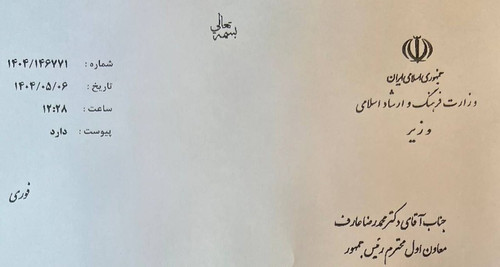 بسمه تعالی
جمهوری اسلامی ایران
وزارت فرهنگ و ارشاد اسلامی
وزیر
شماره : ۱۴۰۴/۱۴۶۷۷۱
تاریخ : ۱۴۰۴/۰۵/۰۶
ساعت : ۱۲:۲۸
پیوست : دارد
فوری
جناب آقای دکتر محمدرضا عارف
معاون اول محترم رئیس جمهور